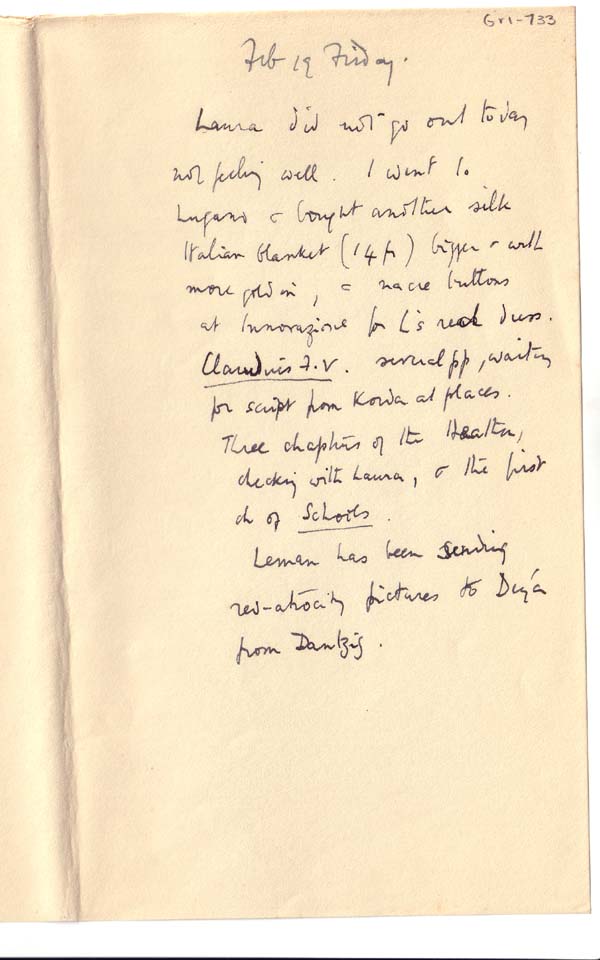 Gr1-733
Feb 19 Friday.
Laura did not go out today
not feeling well. I went to
Lugano & bought another silk
Italian blanket (14 fr) bigger & with
more gold in, & nacre buttons
at Innovazione for L's red dress.
Claudius F.V. several pp, waiting
for script from Korda at places.
Three chapters of the Heathen,
checking with Laura, & the first
ch of Schools.
Leman has been sending
red-atrocity pictures to Deyá
from Dantzig.